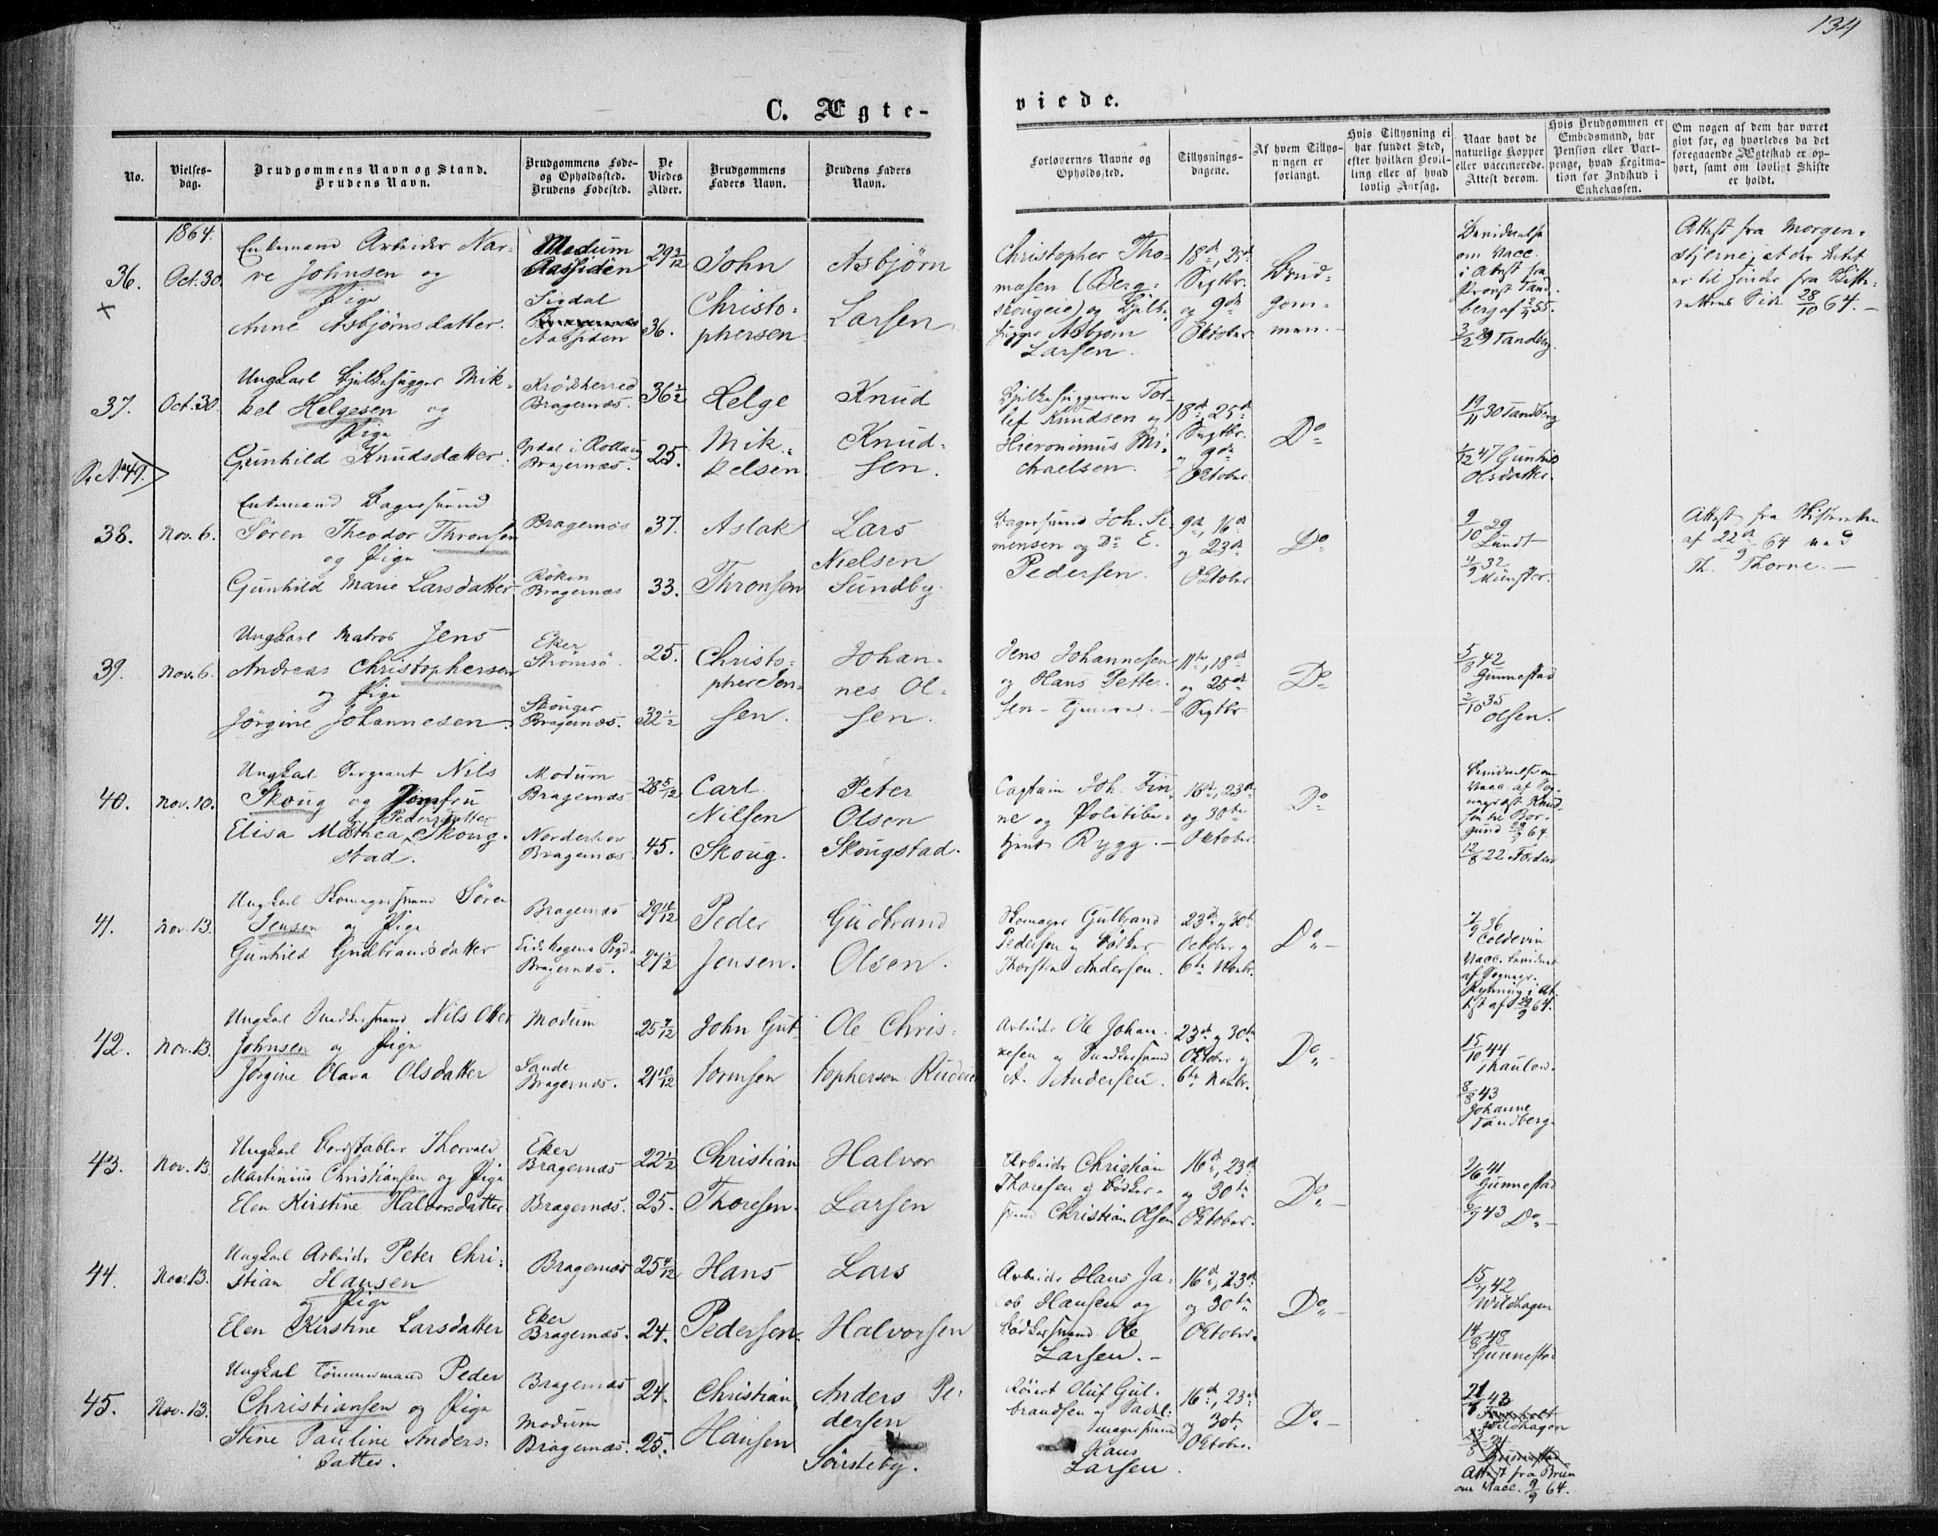 134
C. Ægte-
viede.
No.
Vielses-
dag.
Brudgommens Navn og Stand.
Brudens Navn.
Brudgommens Føde-
og Opholdssted.
Brudens Fødested.
De
Viedes
Alder.
Brudgommens
Faders Navn.
Brudens Faders
Navn.
Forlovernes Navne og
Opholdssted.
Tillysnings-
dagene.
Af hvem Tillys-
ningen er
forlangt.
Hvis Tillysning ei
har fundet Sted,
efter hvilken Bevil-
ling eller af hvad
lovlig Aarsag.
Naar havt de
naturlige Kopper
eller vaccinerede.
Attest derom.
Hvis Brudgommen er
Embedsmand, har
Pension eller Vart-
penge, hvad Legitima-
tion for Indskud i
Enkekassen.
Om nogen af dem har været
givt for, og hvorledes da det
foregaaende Ægteskab er op-
hørt, samt om lovligt Skifte
er holdt.
1864.
36. Oct. 30.
Enkemand Arbeider Nar-
ve Johnsen og
Pige
Anne Asbjørnsdatter.
Modum
Aassiden
Sigdal
Aassiden
29 3/12
36.
John
Christo-
phersen
Asbjørn
Larsen
Christopher Tho-
masen (Berg-
skougeie) og
Asbjørn
Larsen.
18de, 25de
Septbr.
og 9de
Oktober
Brud-
gom-
men.
om Vacc.
i Attest fra
Provst Tand-
berg af 55.
29 Tandberg.
Attest fra Morgen-
stjerne, at der Intet
er til Hinder fra Skifte-
rettens Side 28/10 64.
37. Oct. 30
Ungkarl Bjelkehugger Mik-
kel Helgesen og
Pige
Gunhild Knudsdatter.
Krødsherred
Bragernæs.
Opdal i Rollaug
Bragernæs.
36 1/2
25.
Helge
Mik-
kelsen
Knud
Knud-
sen.
Bjelkehuggerne Tol-
lef Knudsen og
Hieronimus Mi-
chaelsen.
18de, 25de
Septbr.
og 9de
Oktober
Do
19/11 30 Tandberg
1/12 47 Gunhild
Olsdatter.
38. Nov. 6.
Enkemand Bagersvend
Søren Theodor Thronsen
og Pige
Gunhild Marie Larsdatter
Bragernæs
Røken
Bragernæs
37.
33.
Aslak
Thronsen
Lars
Nielsen
Sundby
Bagersvend Joh. Si-
mensen og Do E.
Pedersen.
9de, 16de
og 23de
Oktober
Do
9/10 29
Lundt
4/9 32
Münster.
Attest fra Skifteretten
af 22de/9 64 ved
Th. Thorne.
39. Nov. 6.
Ungkarl Matros Jens
Andreas Christophersen
og Pige
Jørgine Johannesen.
Eker
Strømsø
Skouger
Bragernæs.
25.
32 1/2
Christo-
pher Jen-
sen.
Johan-
nes Ol-
sen.
Jens Johannesen
og Hans Pette-
sen
11te, 18de
og 25de
Septbr
Do
5/8 42
Gunnestad
2/10 35
Olsen.
40. Nov. 10.
Ungkarl Sergeant Nils
Skoug og Jomfru
Pedersdatter
Elisa Mathea Skoug-
stad.
Modum
Bragernæs
Norderhov
Bragernæs.
28 5/12
45.
Carl
Nilsen
Skoug.
Peter
Olsen
Skougstad.
Captain Joh. Fin-
ne og Politibe-
tjent Rygg.
16de, 23de
og 30te
Oktober
Do
41. Nov. 13.
Ungkarl Skomagersvend Søren
Jensen og Pige
Gunhild Gudbrandsdatter
Bragernæs
Bragernæs.
Peder
Jensen.
Gudbrand
Olsen.
Skomager Gulbrand
Pedersen og Bødker
Thorsten Andersen.
23de og 30te
October og
6te Novbr.
Do
7/9 36
Coldevin
42. Nov. 13.
Ungkarl Snedkersvend Nils Otter
Johnsen og Pige
Jørgine Olava Olsdatter
Modum
Sande
Bragernæs.
25 7/12
21 10/12
John Gut-
tormsen
Ole Chris-
tophersen Ruden
Arbeider Ole Johan-
nesen og Snedkersvend
A. Andersen.
23de og 30te
Oktober og
6te Novbr.
Do
15/10 44
Thaulow.
8/8 43
Johanne
Tandberg.
43. Nov. 13.
Ungkarl Bordstabler Thorvald
Martinius Christiansen og Pige
Elen Kirstine Halvorsdatter
Eker
Bragernæs
Bragernæs.
22 1/2
25.
Christian
Thoresen.
Halvor
Larsen
Arbeider Christian
Thoresen og Bødker-
svend Christian Olsen
16de, 23de
og 30te
Oktober.
Do
2/6 41
Gunnestad
6/7 43 Do
44. Nov. 13.
Ungkarl Arbeider Peter Chri-
stian Hansen
og Pige
Elen Kirstine Larsdatter
Bragernæs
Eker
Bragernæs.
25 4/12
24.
Hans
Pedersen.
Lars
Halvorsen
Arbeider Hans Ja-
cob Hansen og
Bødkersvend Ole
Larsen.
16de, 23de
og 30te
Oktober.
Do
15/7 42
Wildhagen
14/8 48
Gunnestad
45. Nov. 13.
Ungkarl Tømmermand Peder
Christiansen og Pige
Stine Pauline Anders-
datter.
Bragernæs
Modum
Bragernæs.
24.
25.
Christian
Hansen
Anders Pe-
dersen
Sørsteby.
Oluf Gul-
brandsen og Sadel-
magersvend
Hans
Larsen.
16de, 23de
og 30te
Oktober.
Do
43
Wildhagen
Attest fra Bruun
om Vacc. 9/9 64.